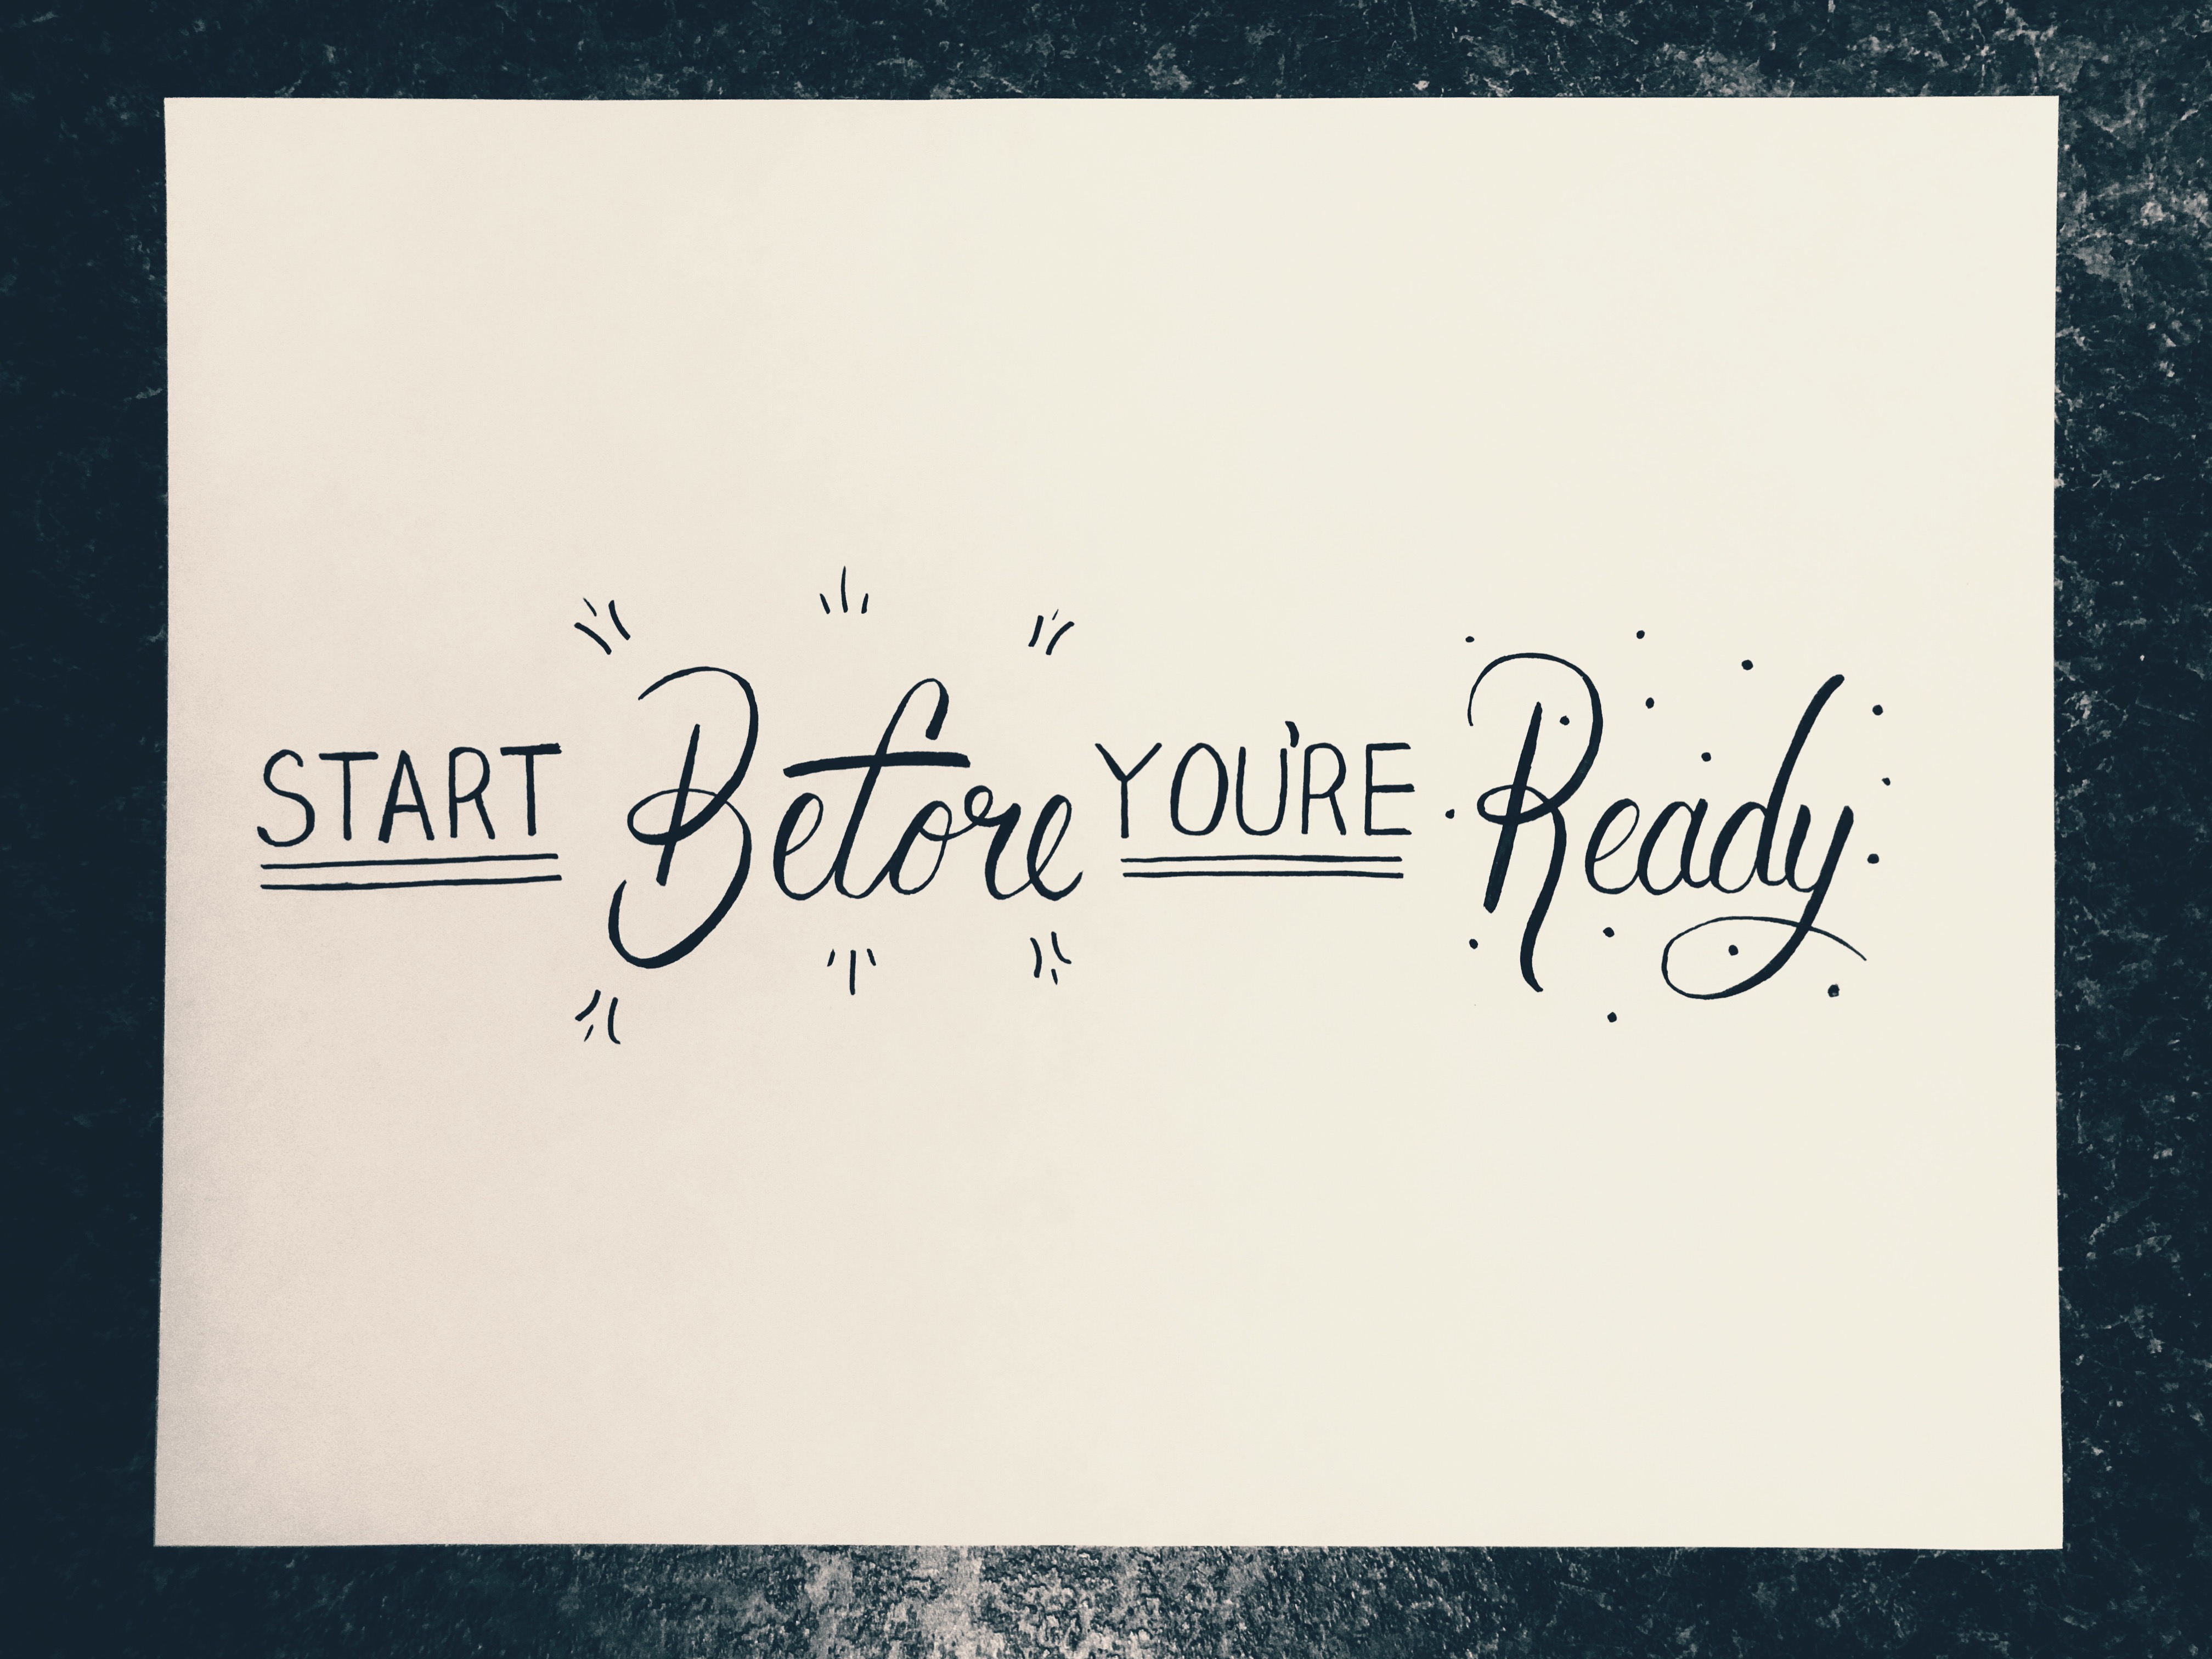 START Before YOU'RE Ready